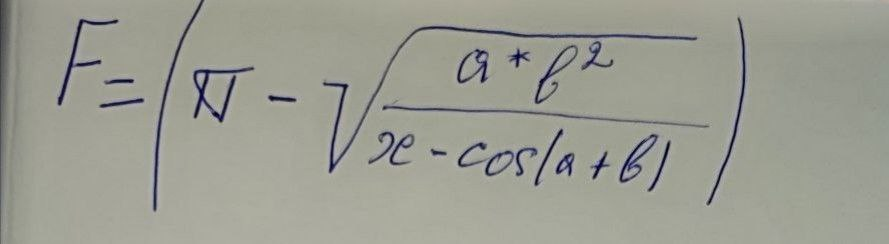 F = | π - √(a * b² / x - cos(a + b)) |